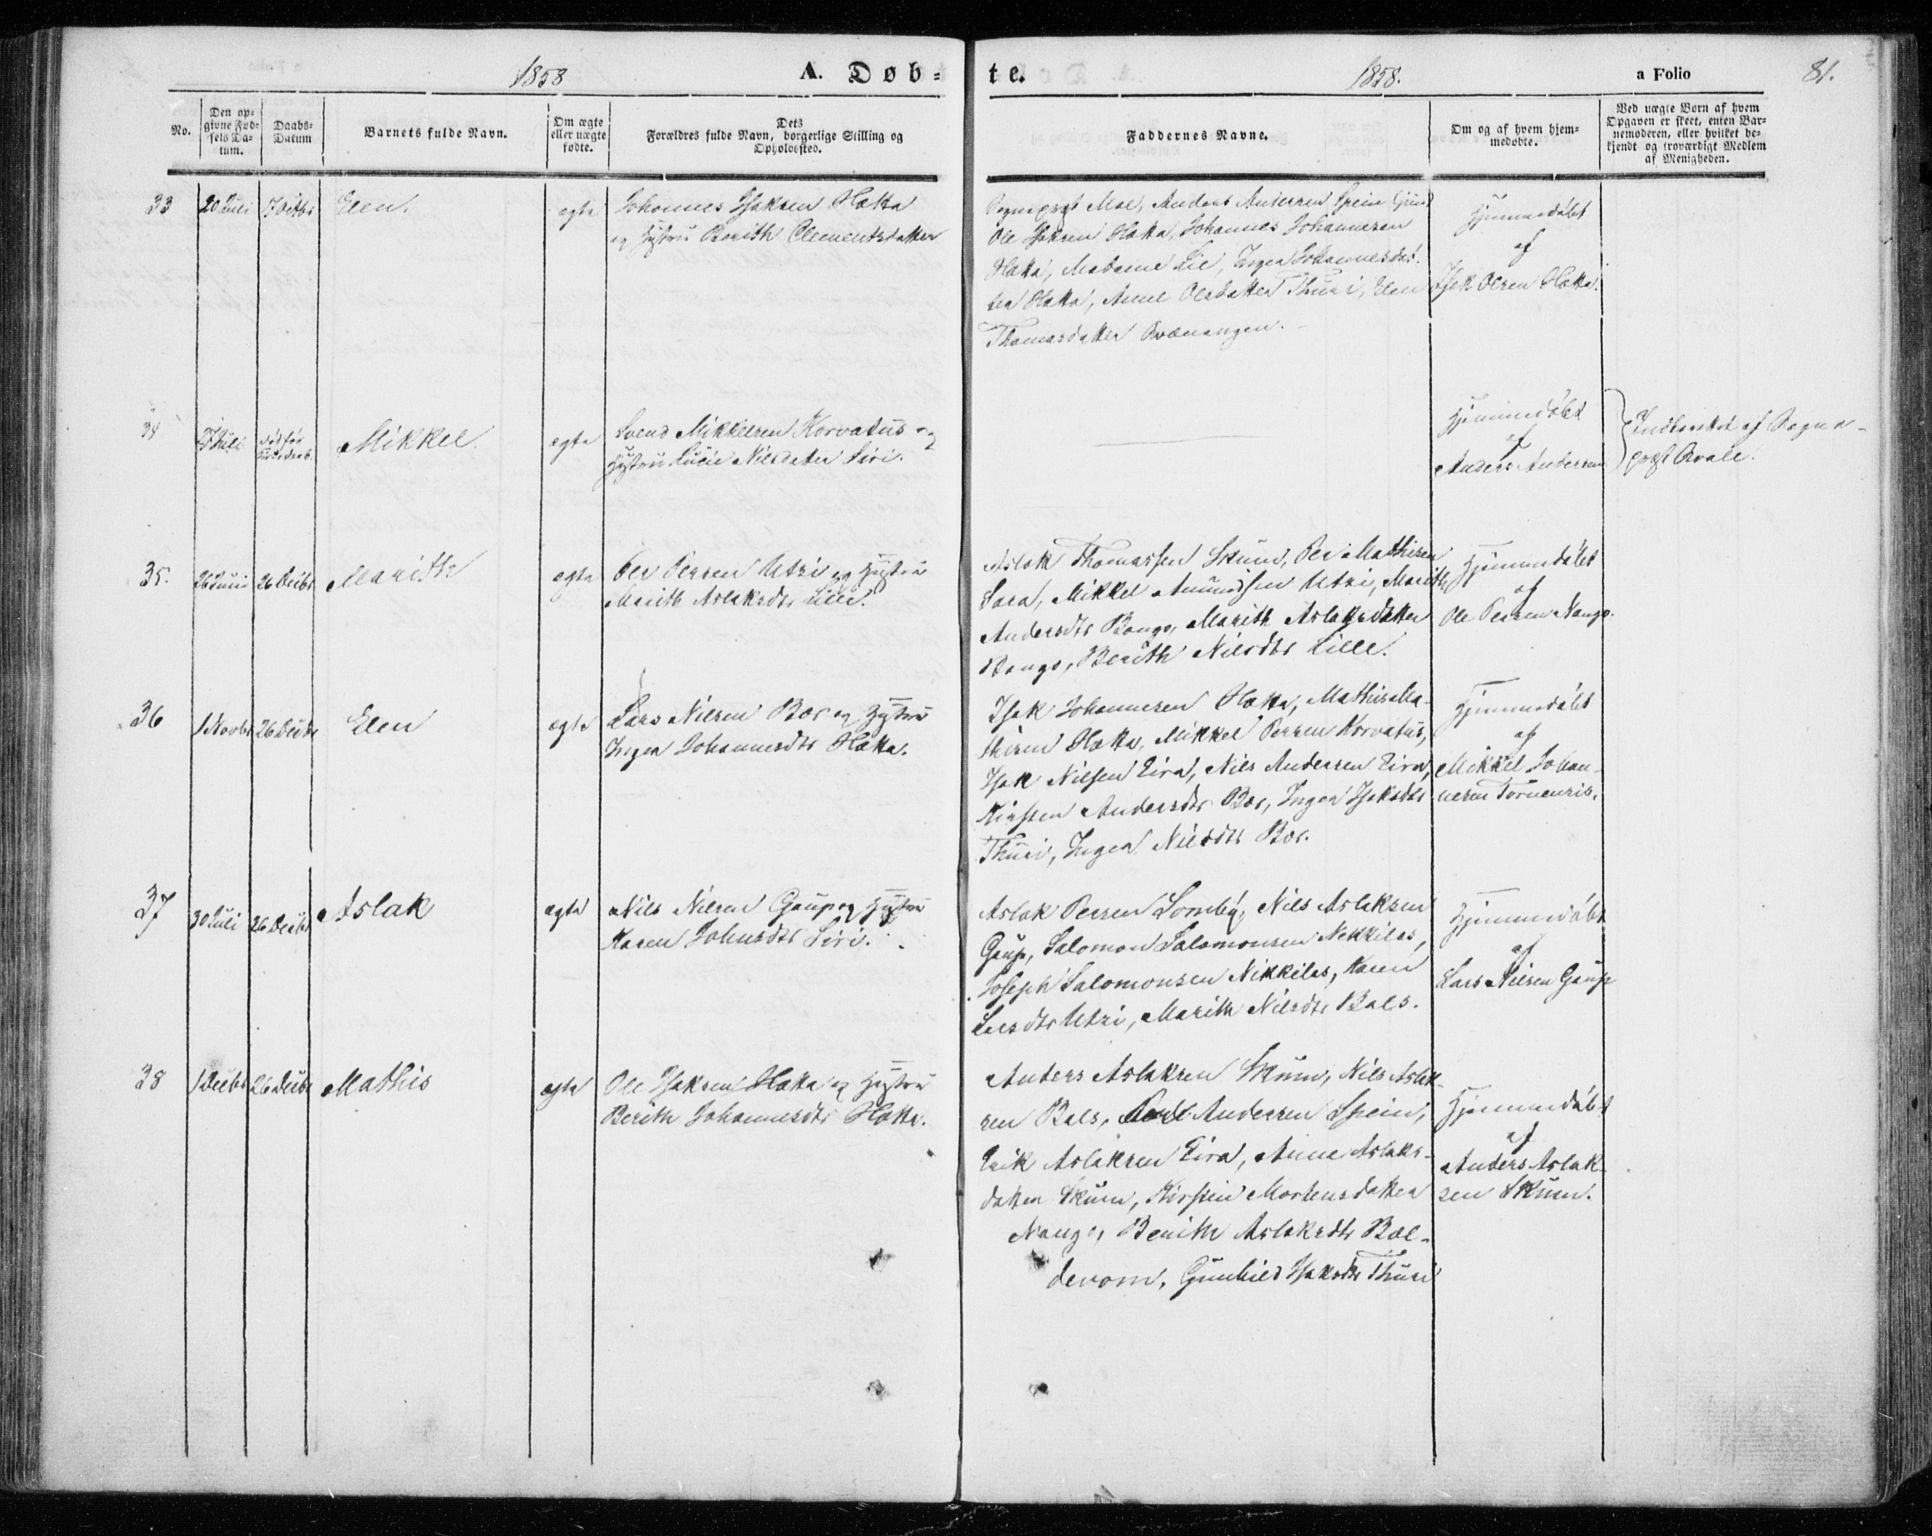 1858 A. Døb-
te. 1858. a Folio 81.
No.
Den op-
givne Fød-
sels Da-
tum.
Daabs-
Datum
Barnets fulde Navn.
Om ægte
eller uægte
fødte.
Dets
Forældres fulde Navn, borgerlige Stilling og
Opholdssted.
Faddernes Navne.
Om og af hvem hjem-
medøbte.
Ved uægte Børn af hvem
Opgaven er skeet, enten Bar-
nemoderen, eller hvilket be-
kjendt og troværdigt Medlem
af Menigheden.
33 20 Juli 7 Octbr Elen. egte
Johannes Isaksen Hætta
og Hustru Berith Clementsdatter
Sogneprest Moe, Anders Andersen Spein
Ole Isaksen Hætta, Johannes Johannesen
Hætta, Madame Lie, Ingea Johannesdat-
ter Hætta, Anne Olsdatter Thuri, Elen
Thomasdatter Qvænangen.
Hjemmedøbt
af
Isak Olsen Hætta.
34 Juli død før Mikkel. egte
Svend Mikkelsen Korvatus og
Hustru Lucie Nilsdatter Siri.
Hjemmedøbt
af
Anders Andersen
Indberettet af Sogne-
prest Qvale.
35. 26 Juni 26 Decbr Marith egte
Per Persen Utzi og Hustru
Marith Aslaksdtr Lille.
Aslak Thomassen Skum, Per Mathisen
Sara, Mikkel Amundsen Utzi, Marith
Andersdtr Bongo, Marith Aslaksdatter
Bongo, Berith Nilsdtr Lille.
Hjemmedøbt
af
Ole Persen Nango.
36 1 Novbr 26 Decbr Elen egte
Lars Nilsen Bær og Hustru
Ingea Johannesdtr Hætta.
Isak Johannesen Hætta, Mathis Ma-
thisen Hætta, Mikkel Persen Korvatus,
Isak Nilsen Eira, Nils Andersen Eira,
Kirsten Andersdtr Bær, Ingea Isaksdtr
Thuri, Ingea Nilsdtr Bær.
Hjemmedøbt
af
Mikkel Johan-
nesen Tornensis.
37 30 Juli 26 Decbr Aslak egte
Nils Nilsen Gaup og Hustru
Karen Johnsdtr Siri.
Aslak Persen Somby, Nils Aslaksen
Gaup, Salomon Salomonsen Nekkilas,
Joseph Salomonsen Nikkilas, Karen
Larsdtr Utzi, Marith Nilsdtr Bals.
Hjemmedøbt
af
Lars Nilsen Gaup
38 1 Decbr 26 Decbr Mathis egte
Ole Isaksen Hætta og Hustru
Berith Johannesdtr Hætta.
Anders Aslaksen Skum, Nils Aslak-
sen Bals, Andersen Spein,
Erik Aslaksen Eira, Anne Aslaks-
datter Skum, Kirsten Mortensdatter
Nango, Berith Aslaksdtr Bæl-
devom, Gunhild Isaksdtr Thuri
Hjemmedøbt
af
Anders Aslak-
sen Skum.